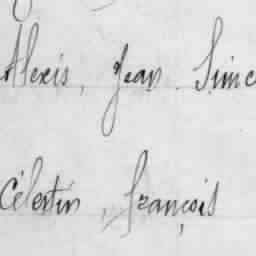 Alexis, Jean
Célestin, François